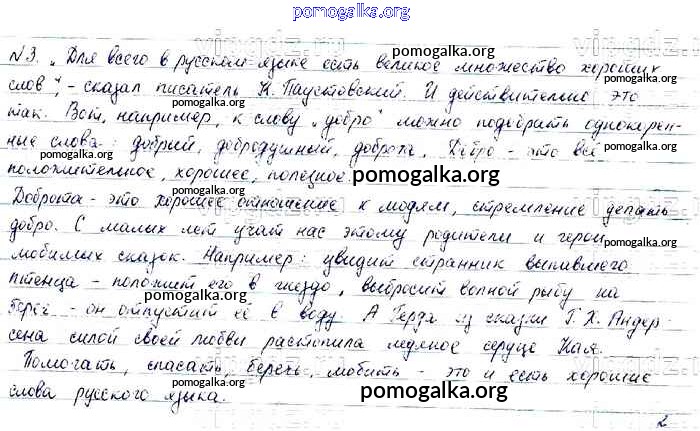 pomogalka.org
N3. „Для всего в русском языке есть великое множество хороших
pomogalka.org
слов", - сказал писатель К. Паустовский. И действительно это
pomogalka.org
так. Вот, например, к слову „добро" можно подобрать однокорен-
ные слова: добрый, добродушный, доброта. Добро - это всё
pomogalka.org
положительное, хорошее, полезное.
pomogalka.org
Доброта - это хорошее отношение к людям, стремление делать
pomogalka.org
добро. С малых лет учат нас этому родители и герои
pomogalka.org
любимых сказок. Например: увидит странник выпавшего
птенца - положит его в гнездо, выбросит волной рыбу на
pomogalka.org
берег - он отпустит её в воду. А Герда из сказки Г. Х. Андер
pomogalka.org
сена силой своей любви растопила ледяное сердце Кая.
pomogalka.org
Помогать, спасать, беречь, любить - это и есть хорошие
pomogalka.org
слова русского языка.
2